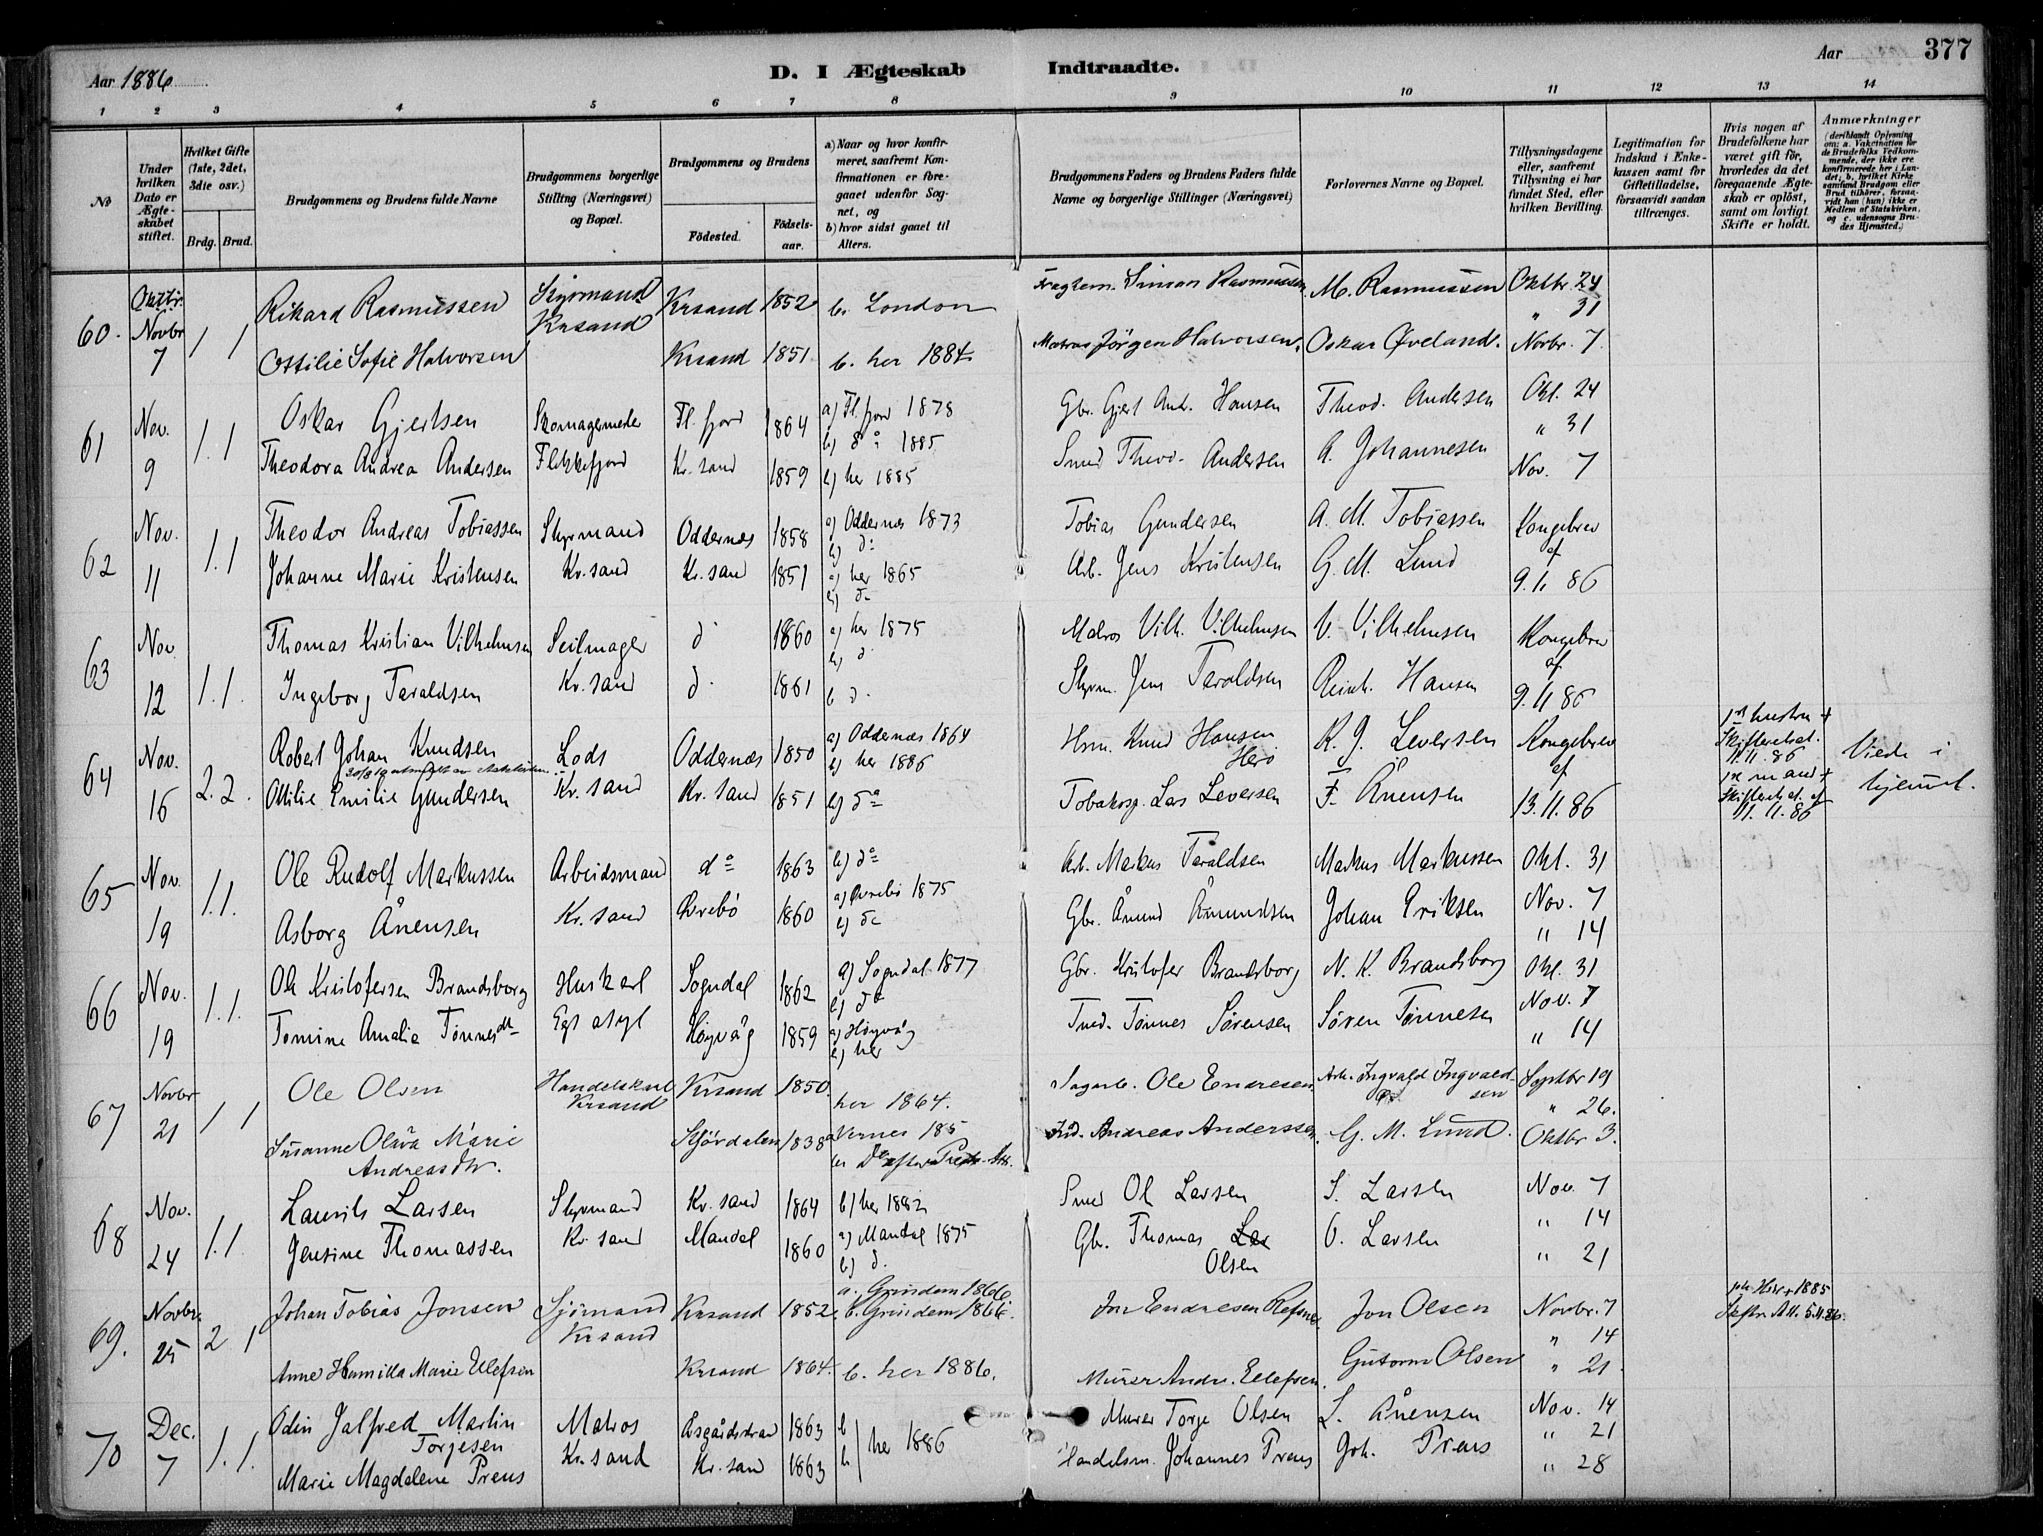 Aar 1886
D. I Ægteskab Indtraadte.
Aar
377
1 2 3 4 5 6 7 8 9 10 11 12 13 14
No
Under hvilken Dato er Ægteskabet stiftet.
Hvilket Gifte (1ste, 2det, 3die osv.)
Brdg. Brud.
Brudgommens og Brudens fulde Navne
Brudgommens borgerlige Stilling (Næringsvei) og Bopæl.
Brudgommens og Brudens
Fødested.
Fødsels-aar.
a) Naar og hvor konfirmeret, saafremt Konfirmationen er foregaaet udenfor Sognet, og
b) hvor sidst gaaet til Alters.
Brudgommens Faders og Brudens Faders fulde Navne og borgerlige Stillinger (Næringsvei)
Forlovernes Navne og Bopæl.
Tillysningsdagene eller, saafremt Tillysning ei har fundet Sted, efter hvilken Bevilling.
Legitimation for Indskud i Enkekassen samt for Giftetilladelse, forsaavidt saadan tiltrænges.
Hvis nogen af Brudefolkene har været gift før, hvorledes da det foregaaende Ægteskab er opløst, samt om lovligt Skifte er holdt.
Anmærkninger
(deriblandt Oplysning om: a. Vakcination for de Brudefolks Vedkommende, der ikke ere konfirmerede her i Landet; b. hvilket Kirkesamfund Brudgom eller Brud tilhører, forsaavidt han (hun) ikke er Medlem af Statskirken, og c. udensogns Brudes Hjemsted.)
60. Oktbr. Novbr 7 1 1 Rikard Rasmussen Styrmand Krsand Krsand 1852 b. London Simon Rasmussen M. Rasmussen Oktbr. 24
" 31
Ottilie Sofie Halvorsen Krsand 1851 b. her 1884 Matros Jörgen Halvorsen. Oskar Øveland. Novbr. 7.
61 Nov. 9 1. 1 Oskar Gjertsen Skomagermester Fl. fjord 1864 a) Fl. fjord 1878 Gbr. Gjert Andr. Hansen Theod. Andersen Okt. 24
Flekkefjord b) do 1885 " 31
Theodora Andrea Andersen Kr. sand 1859 b) her 1885 Smed Theod. Andersen A. Johannesen Nov. 7
62 Nov. 11 1. 1 Theodor Andreas Tobiassen Styrmand Oddernæs 1858 a) Oddernæs 1873 Tobias Gundersen A. M. Tobiassen Kongebrev
b) do af
Johanne Marie Kristensen Kr. sand Kr. sand 1851 a) her 1865 Arb. Jens Kristensen G. M. Lund 9. 11 86
b) do
63 Nov. 12 1. 1. Thomas Kristian Vilhelmsen Seilmager do 1860 a) her 1875 Matros Vilh. Vilhelmsen V. Vilhelmsen Kongebrev
b) do af
Ingeborg Taraldsen Kr. sand do 1861 b do Styrm. Jens Taraldsen Reinh. Hansen 9. 11 86
64 Nov. 16 2. 2. Robert Johan Knudsen Lods Oddernæs 1850 a) Oddernæs 1864 Knud Hansen K. J. Leversen Kongebrev 1st hustru + Viede i hjemmet.
b) her 1886 Herö af Skifteretsat. 11. 11. 86
Ottilie Emilie Gundersen Kr. sand Kr. sand 1851 b) do Lars Leversen F. Ånensen 13. 11. 86 1st mand + Skifteretsat. af 11. 11. 86
65 Nov. 19 1. 1. Ole Rudolf Markussen Arbeidsmand do 1863 b) do Arb. Markus Taraldsen Markus Markussen Okt. 31
Asborg Ånensen Kr. sand Øvrebö 1860 a) Øvrebö 1875 Gbr. Ånund Ånundsen Johan Eriksen Nov. 7
b) do " 14
66 Nov. 19 1. 1. Ole Kristofersen Brandsborg Huskarl Sogndal 1862 a) Sogndal 1877 Gbr. Kristofer Brandsborg N. K. Brandsborg Okt. 31
b) do Nov. 7
Tomine Amalia Tönnesdtr Egs asyl Høyvåg 1859 a) Høyvåg Tönnes Sörensen Sören Tönnesen " 14
b) her
67 Novbr 21 1 1 Ole Olsen Handelskarl Krsand Krsand 1850. her 1864. Ole Endresen Arb. Ingvald Ingvaldsen Septbr 19
" 26.
Susanne Olava Marie Andreasdtr. Stjördalen 1838 Andreas Anderssen G. M. Lund. Oktbr 3.
68 Nov. 24 1. 1 Laurits Larsen Styrmand Kr. sand 1864 b) her 1882 Smed Ol Larsen S. Larsen Nov. 7
Kr. sand " 14
Jensine Thomassen Mandal 1860 a) Mandal 1875 Gbr. Thomas Olsen O. Larsen " 21
b) do
69. Novbr. 25 2 1 Johan Tobias Jonsen Sjömand Krsand Krsand 1852. a. Grindem 1866 Jon Endresen Jon Olsen Novbr. 7
b. Grindem 1866. " 14
Anne Hamilla Marie Ellefsen Krsand 1864. b. her 1886. Murer Andr. Ellefsen. Gutorm Olsen " 21.
70 Dec. 7 1. 1. Odin Jalfred Martin Torjesen Matros Åsgårdstrand 1863 b Murer Torje Olsen L. Ånensen Nov. 14
her 1886 " 21
Marie Magdalene Preus Kr. sand Kr. sand 1863 b Handelsm. Johannes Preus Joh. Preus " 28